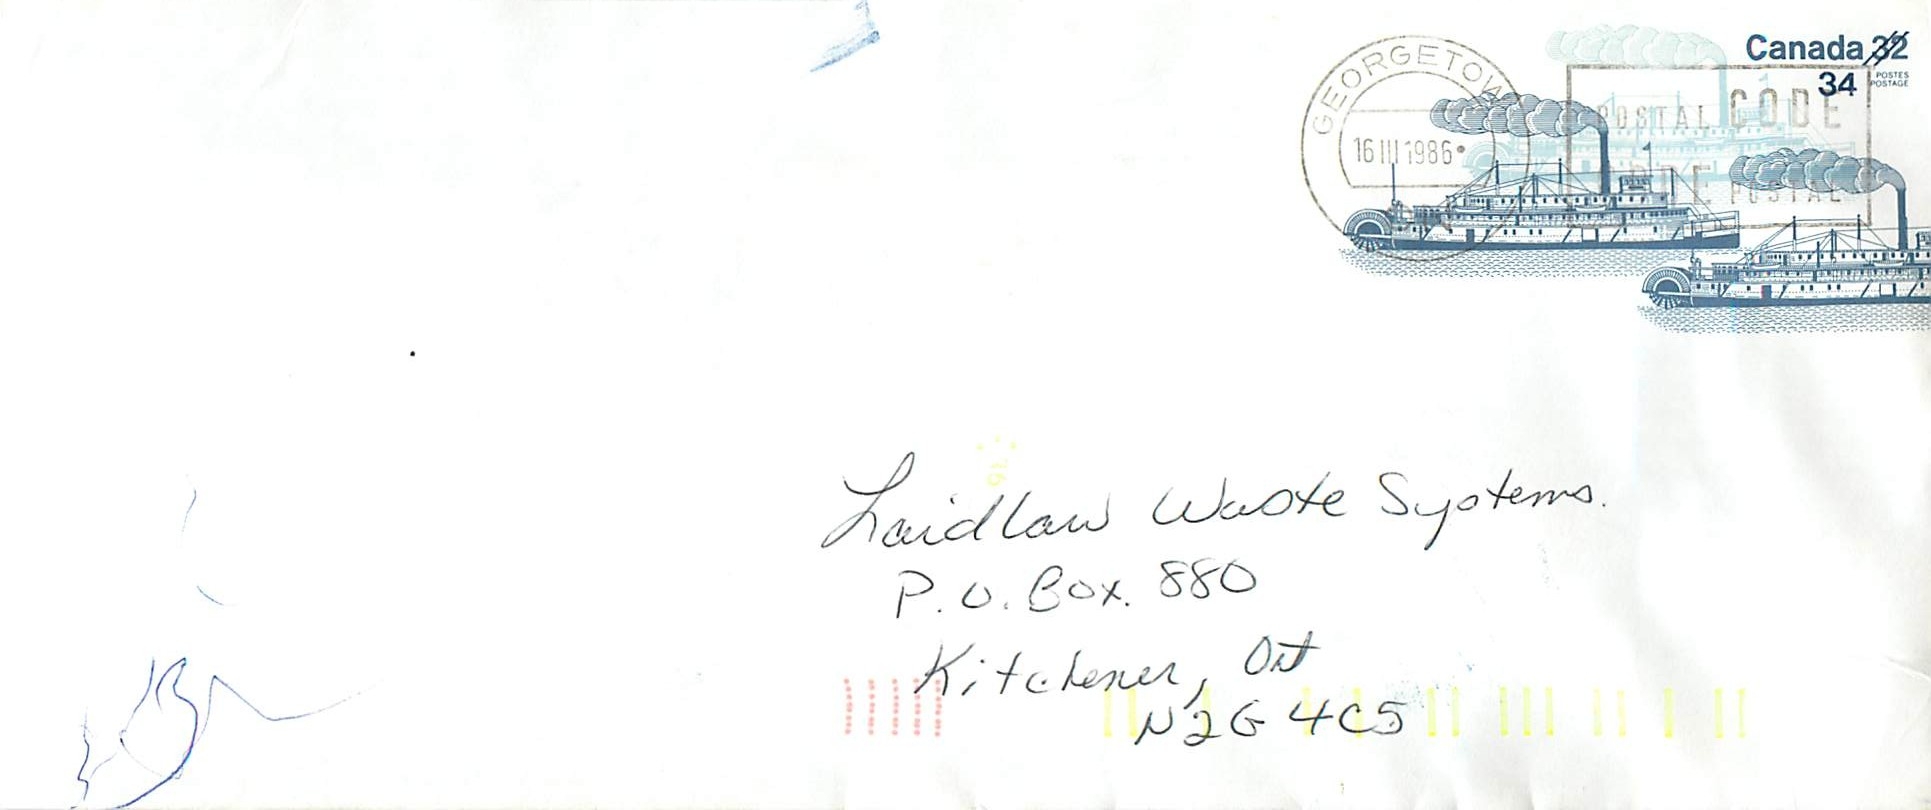 Canada 32
34 POSTES
POSTAGE
GEORGETOWN
16 III 1986
POSTAL CODE
CODE POSTAL
Laidlaw Waste Systems.
P.O. Box. 880
Kitchener, Ont
N2G 4C5